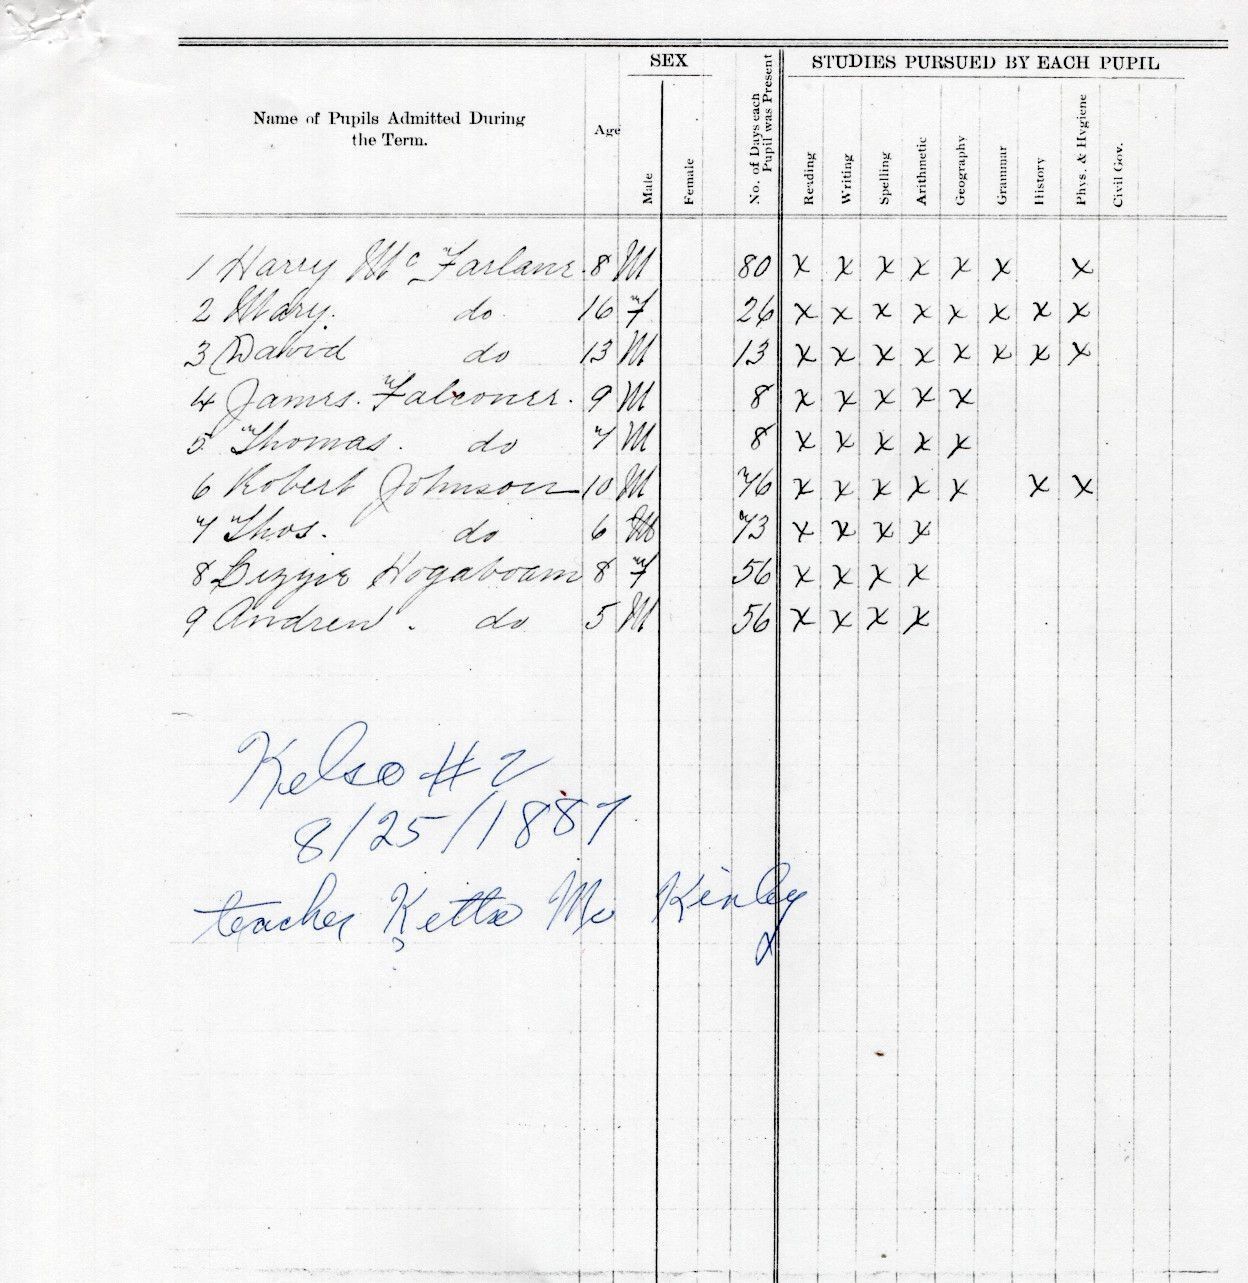 SEX
STUDIES PURSUED BY EACH PUPIL
Name of Pupils Admitted During
the Term.
Age
Male
Female
No. of Days each
Pupil was Present
Reading
Writing
Spelling
Arithmetic
Geography
Grammar
History
Phys. & Hygiene
Civil Gov.
1 Harry Mc Farlane. 8 M 80 x x x x x x x
2 Mary. do 16 F 26 x x x x x x x x
3 David do 13 M 13 x x x x x x x x
4 James. Falconer. 9 M 8 x x x x x
5 Thomas. do 7 M 8 x x x x x
6 Robert Johnson 10 M 76 x x x x x x x
7 Thos. do 6 M 73 x x x x
8 Lizzie Hogaboam 8 F 56 x x x x
9 Andrew. do 5 M 56 x x x x
Kelso #2
8/25/1887
teacher Kettie Mc Kinley
?